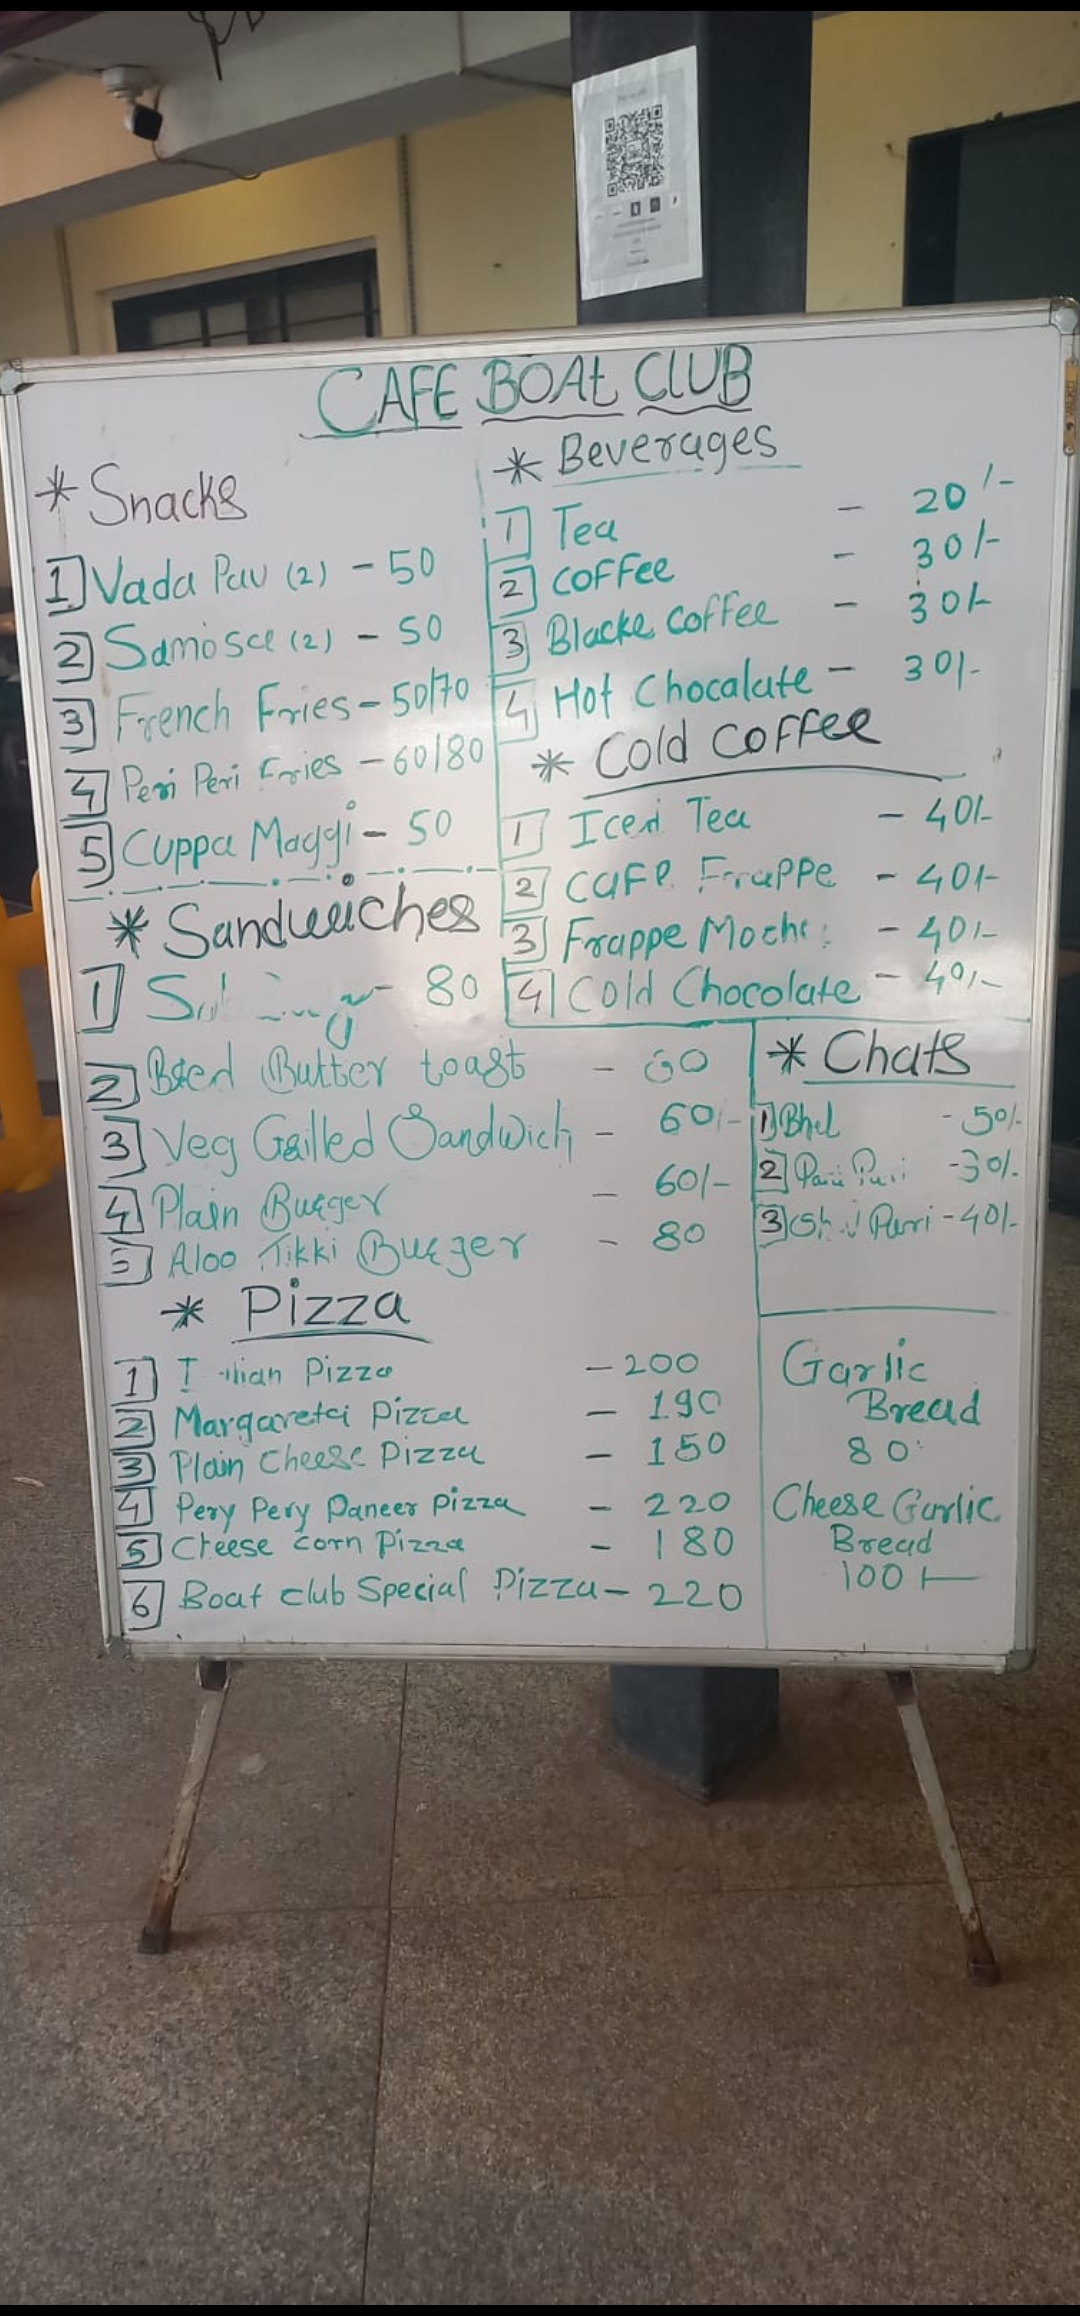 CAFE BOAt CLUB
* Snacks
1 Vada Pav (2) - 50
2 Samosa (2) - 50
3 French Fries - 50/70
4 Peri Peri Fries - 60/80
5 Cuppa Maggi - 50
* Beverages
1 Tea - 20/-
2 COFFee - 30/-
3 Blacke COFFee - 30/-
4 Hot Chocalate - 30/-
* Cold COFFee
1 Iced Tea - 40/-
2 CAFE Frappe - 40/-
3 Frappe Mocha - 40/-
4 Cold Chocolate - 40/-
* Sandwiches
1 - 80
2 Bred Butter toast -
3 Veg Grilled Sandwich - 60/-
4 Plain Burger - 60/-
5 Aloo Tikki Burger - 80
* Chats
1 Bhel - 50/-
2 Pani Puri - 30/-
3 Puri - 40/-
* Pizza
1 Pizza - 200
2 Margareta Pizza - 190
3 Plain Cheese Pizza - 150
4 Pery Pery Paneer Pizza - 220
5 Cheese corn Pizza - 180
6 Boat club Special Pizza - 220
Garlic
Bread
80
Cheese Garlic
Bread
100/-